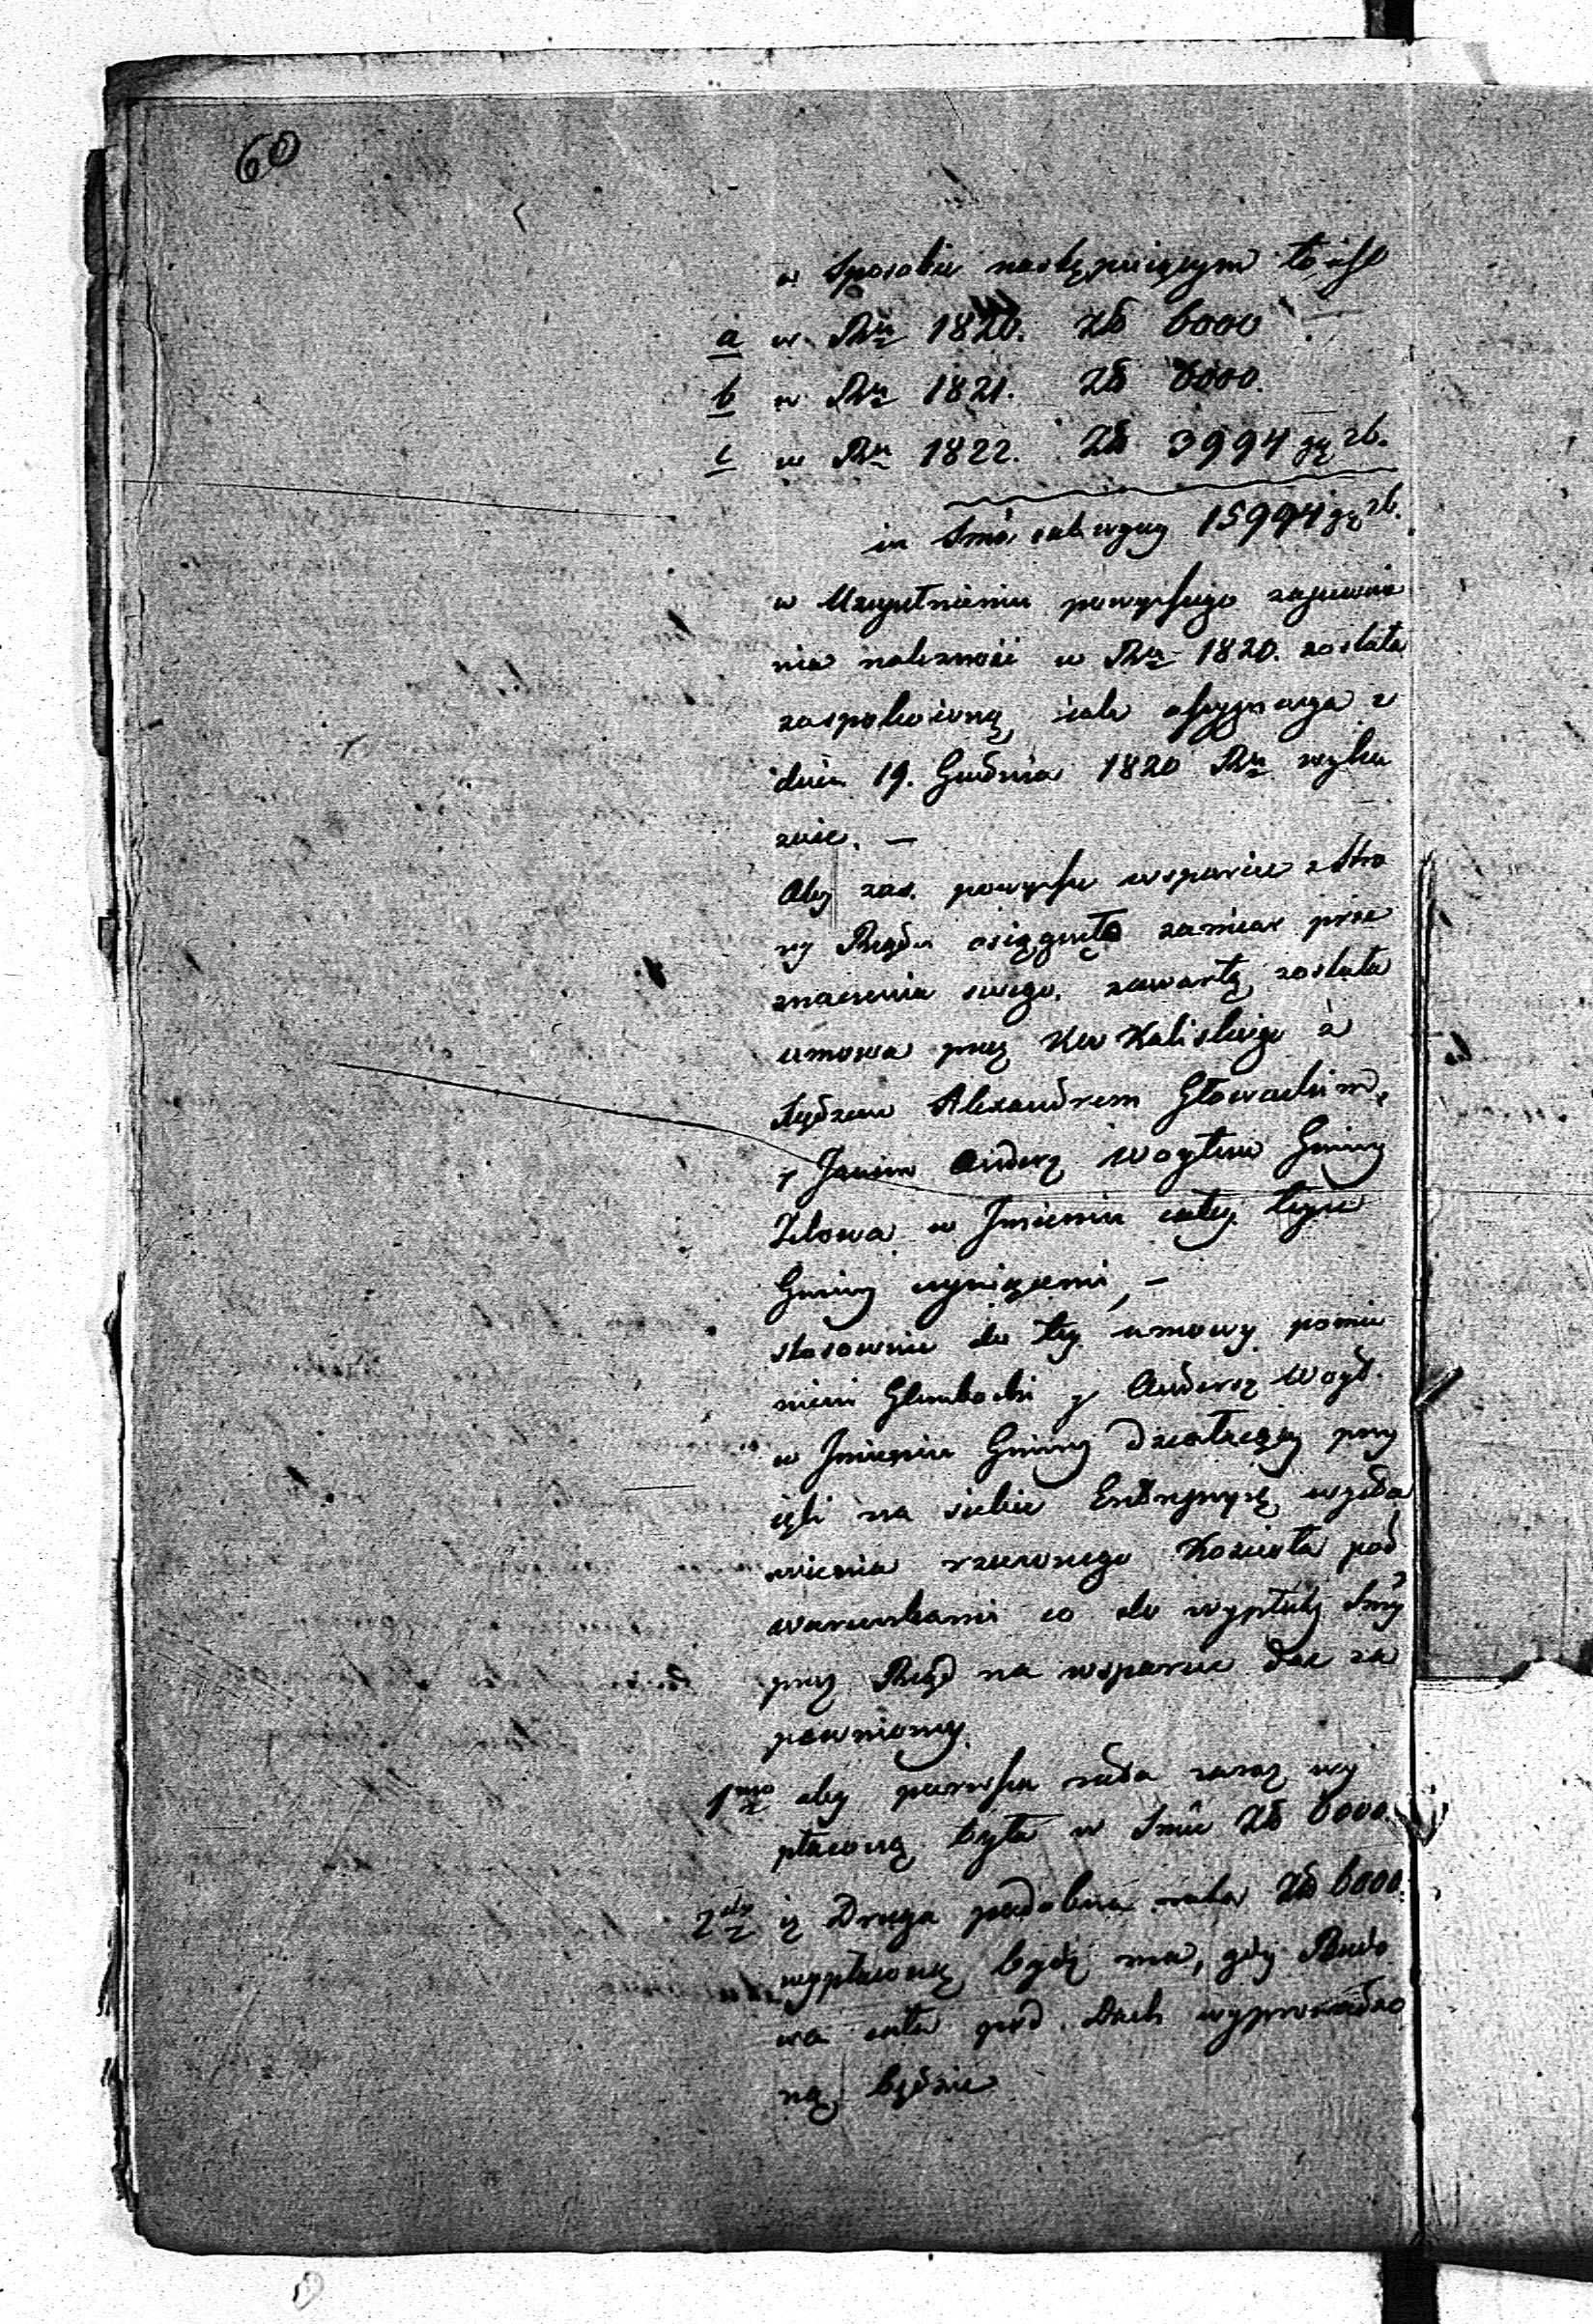 60
w Sposobie następuiącym to iest
a w Rku 1820. Zł 6000
b w Rku 1821. Zł 6000.
c w Rku 1822. Zł 3994 gr 26.
in Sma całkowey 15994 gr 26.
w Uzupełnieniu powyższego zapewnie
nia należność w Rku 1820. została
zaspokoioną iak assygnacya z
dnia 19. Grudnia 1820 Rku wyka
zuie. —
Aby zas. powyższe wsparcie z Stro
ny Rządu osiągnęło zamiar prze
znaczenia swego. zawartą została
umowa przez Kaliskiego a
Sędzim Alexandrem Głowackim,
y Janem Anderz Woytem Gminy
Zelowa w Jmieniu całey teyże
Gminy czyniącemi, —
stosownie do tey umowy pomie
nieni Głembocki y Anderz Woyt.
w Jmieniu Gminy działaiący przy
ięli na siebie Entrepryzę wysta
wienia rzeczonego Kościoła pod
warunkami co do wypłaty Smy
przez Rząd na wsparcie dać za
pewnioney.
1mo aby pierwsza rata zaraz wy
płaconą była w Smie Zł 6000.
2do iż Druga podobna rata Zł 6000.
wypłaconą bydź ma, gdy Budo
wa cała pod Dach wyprowadzo
ną będzie